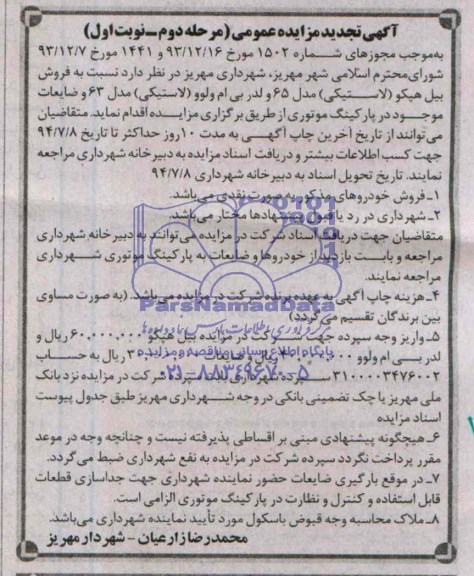 آگهی تجدید مزایده عمومی (مرحله دوم ـ نوبت اول)
به‌موجب مجوزهای شماره ۱۵۰۲ مورخ ۹۳/۱۲/۱۶ و ۱۴۴۱ مورخ ۹۳/۱۲/۷
شورای‌محترم اسلامی شهر مهریز، شهرداری مهریز در نظر دارد نسبت به فروش
بیل هپکو (لاستیکی) مدل ۶۵ و لدر بی ام ولوو (لاستیکی) مدل ۶۳ و ضایعات
موجود در پارکینگ موتوری از طریق برگزاری مزایده اقدام نماید. متقاضیان
می‌توانند از تاریخ آخرین چاپ آگهی به مدت ۱۰روز حداکثر تا تاریخ ۹۴/۷/۸
جهت کسب اطلاعات بیشتر و دریافت اسناد مزایده به دبیرخانه شهرداری مراجعه
نمایند. تاریخ تحویل اسناد به دبیرخانه شهرداری ۹۴/۷/۸
۱ـ فروش خودروهای مذکور به صورت نقدی می‌باشد.
۲ـ شهرداری در رد یا قبول پیشنهادها مختار می‌باشد.
متقاضیان جهت دریافت اسناد شرکت در مزایده می‌توانند به دبیرخانه شهرداری
مراجعه و بابت بازدید از خودروها و ضایعات به پارکینگ موتوری شهرداری
مراجعه نمایند.
۴ـ هزینه چاپ آگهی به عهده برنده شرکت در مزایده می‌باشد. (به صورت مساوی
بین برندگان تقسیم می‌گردد)
ParsNamadData
۵ـ واریز وجه سپرده جهت شرکت در مزایده بیل هپکو ۶۰,۰۰۰,۰۰۰ ریال و
لدر بی ام ولوو ریال و ضایعات ریال به حساب
پایگاه اطلاع رسانی مناقصه و مزایده
۳۱۰۰۰۰۳۴۷۶۰۰۲ سپرده شهرداری بابت سپرده شرکت در مزایده نزد بانک
۰۲۱-۸۸۳۴۹۶۷۰-۵
ملی مهریز یا چک تضمینی بانکی در وجه شهرداری مهریز طبق جدول پیوست
اسناد مزایده
۶ـ هیچگونه پیشنهادی مبنی بر اقساطی پذیرفته نیست و چنانچه وجه در موعد
مقرر پرداخت نگردد سپرده شرکت در مزایده به نفع شهرداری ضبط می‌گردد.
۷ـ در موقع بارگیری ضایعات حضور نماینده شهرداری جهت جداسازی قطعات
قابل استفاده و کنترل و نظارت در پارکینگ موتوری الزامی است.
۸ـ ملاک محاسبه وجه قبوض باسکول مورد تأیید نماینده شهرداری می‌باشد.
محمدرضا زارعیان - شهردار مهریز